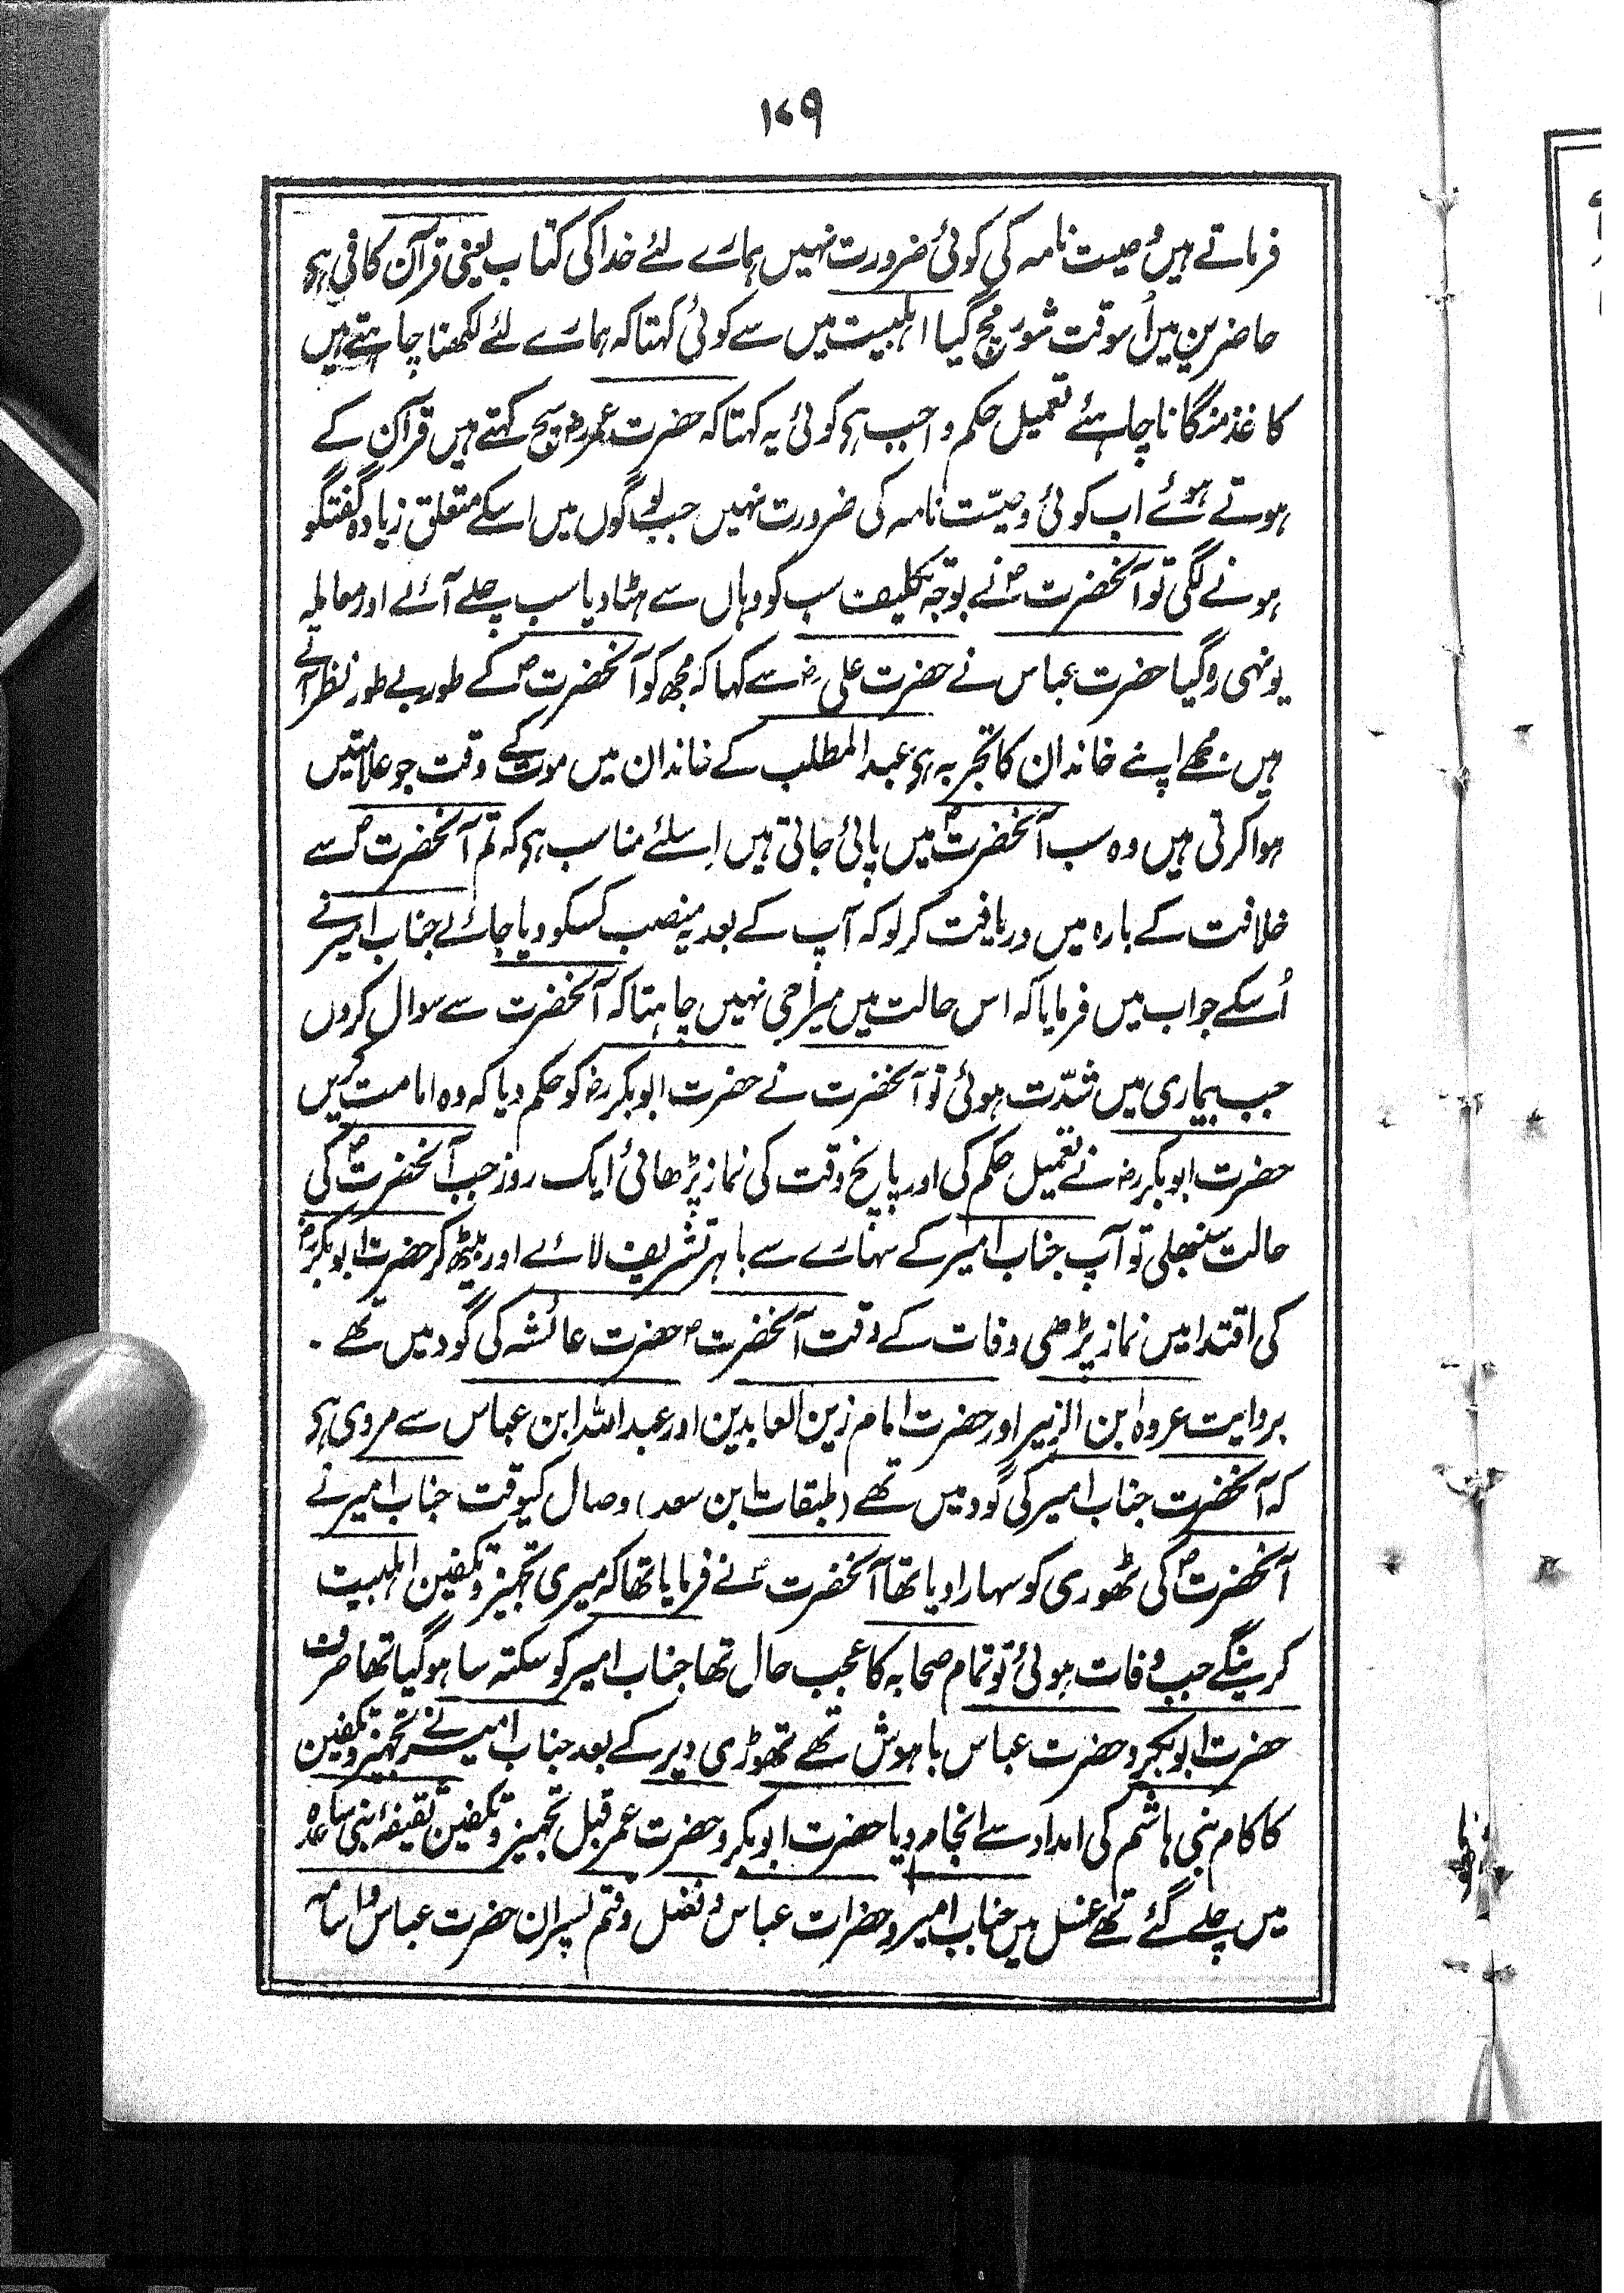 ۱۷۹
فرماتے ہیں وصیت نامہ کی کوئی ضرورت نہیں ہمارے لئے خدا کی کتاب یعنی قرآن کافی ہی
حاضرین میں اُسوقت شور مچ گیا اہلبیت میں سے کوئی کہتا کہ ہمارے لئے لکھنا چاہتے ہیں
کاغذ منگانا چاہئے تعمیل حکم واجب ہی کوئی یہ کہتا کہ حضرت عمرؓ سچ کہتے ہیں قرآن کے
ہوتے ہوئے اب کوئی وصیّت نامہ کی ضرورت نہیں جب لوگوں میں اسکے متعلق زیادہ گفتگو
ہونے لگی تو آنحضرتؐ نے بوجہ تکلیف سب کو وہاں سے ہٹا دیا سب چلے آئے اور معاملہ
یونہی رہ گیا حضرت عباس نے حضرت علیؓ سے کہا کہ مجھ کو آنحضرتؐ کے طور بے طور نظر آتے
ہیں مجھے اپنے خاندان کا تجربہ ہی عبدالمطلب کے خاندان میں موت کے وقت جو علامتیں
ہوا کرتی ہیں وہ سب آنحضرتؐ میں پائی جاتی ہیں اِسلئے مناسب ہی کہ تم آنحضرتؐ سے
خلافت کے بارہ میں دریافت کر لو کہ آپ کے بعد یہ منصب کسکو دیا جائے جناب امیر نے
اُسکے جواب میں فرمایا کہ اس حالت میں میرا جی نہیں چاہتا کہ آنحضرت سے سوال کروں
جب بیماری میں شدّت ہوئی تو آنحضرت نے حضرت ابوبکرؓ کو حکم دیا کہ وہ امامت کریں
حضرت ابوبکرؓ نے تعمیل حکم کی اور پانچ وقت کی نماز پڑھائی ایک روز جب آنحضرتؐ کی
حالت سنبھلی تو آپ جناب امیر کے سہارے سے باہر تشریف لائے اور بیٹھ کر حضرت ابوبکرؓ
کی اقتدا میں نماز پڑھی وفات کے وقت آنحضرتؐ حضرت عائشہ کی گود میں تھے ۔
بروایت عروہ ابن الزبیر اور حضرت امام زین العابدین اور عبداللہ ابن عباس سے مروی ہی
کہ آنحضرت جناب امیر کی گود میں تھے (طبقات ابن سعد) وصال کیوقت جناب امیر نے
آنحضرتؐ کی ٹھوری کو سہارا دیا تھا آنحضرتؐ نے فرمایا تھا کہ میری تجہیز و تکفین اہلبیت
کرینگے جب وفات ہوئی تو تمام صحابہ کا عجب حال تھا جناب امیر کو سکتہ سا ہو گیا تھا صرف
حضرت ابوبکر و حضرت عباس باہوش تھے تھوڑی دیر کے بعد جناب امیر نے تجہیز و تکفین
کا کام بنی ہاشم کی امداد سے انجام دیا حضرت ابوبکر و حضرت عمر قبل تجہیز و تکفین ثقیفۂ بنی ساعدہ
میں چلے گئے تھے غسل میں جناب امیر و حضرات عباس و فضل و قثم پسران حضرت عباس و اسامہ